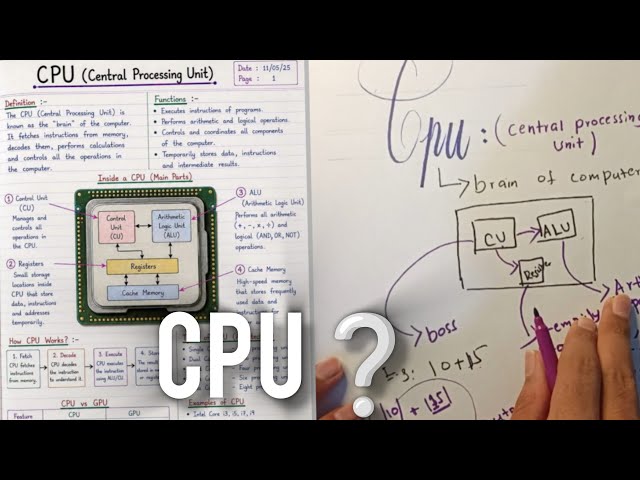 CPU (Central Processing Unit)
Date : 11/05/25
Page : 1
Definition :-
The CPU (Central Processing Unit) is
known as the "brain" of the computer.
It fetches instructions from memory,
decodes them, performs calculations
and controls all the operations in
the computer.
Functions :-
• Executes instructions of programs.
• Performs arithmetic and logical operations.
• Controls and coordinates all components
of the computer.
• Temporarily stores data, instructions
and intermediate results.
Inside a CPU (Main Parts)
1 Control Unit
(CU)
Manages and
controls all
operations in
the CPU.
2 Registers
Small storage
locations inside
CPU that store
data, instructions
and addresses
temporarily.
Control
Unit
(CU)
Arithmetic
Logic Unit
(ALU)
Registers
Cache Memory
3 ALU
(Arithmetic Logic Unit)
Performs all arithmetic
(+, -, ×, ÷) and
logical (AND, OR, NOT)
operations.
4 Cache Memory
High-speed memory
that stores frequently
used data and
instructions for
How CPU Works? :-
1. Fetch
CPU fetches
instructions
from memory.
2. Decode
CPU decodes
the instruction
to understand it.
3. Execute
CPU executes
the instruction
using ALU/CU.
CPU vs GPU
Feature CPU GPU
Examples of CPU
• Intel Core i3, i5, i7, i9
CPU ?
Cpu : (central processing
unit)
brain of computer
CU
ALU
boss
10+15
10 + 15